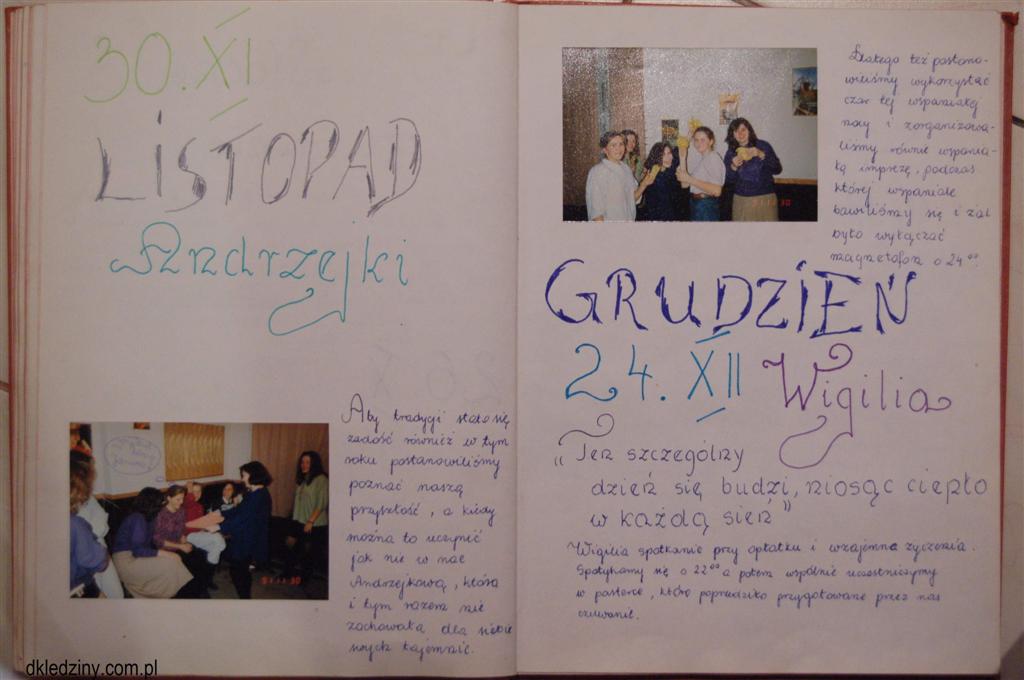 30.XI
LISTOPAD
Andrzejki
Aby tradycji stało się
zadość również w tym
roku postanowiliśmy
poznać naszą
przyszłość, a kiedy
można to uczynić
jak nie w noc
Andrzejkową, która
i tym razem nie
zachowała dla siebie
swych tajemnic.
91 11 30
Dlatego też postano-
wiliśmy wykorzystać
czar tej wspaniałej
nocy i zorganizowa-
liśmy równie wspania-
łą imprezę, podczas
której wspaniale
bawiliśmy się i żal
było wyłączać
magnetofon o 24⁰⁰.
91 11 30
GRUDZIEŃ
24. XII Wigilia
"Ten szczególny
dzień się budzi, niosąc ciepło
w każdą sień"
Wigilia spotkanie przy opłatku i wzajemne życzenia.
Spotykamy się o 22⁰⁰ a potem wspólnie uczestniczymy
w pasterce, którą poprzedziło przygotowane przez nas
czuwanie.
dkledziny.com.pl